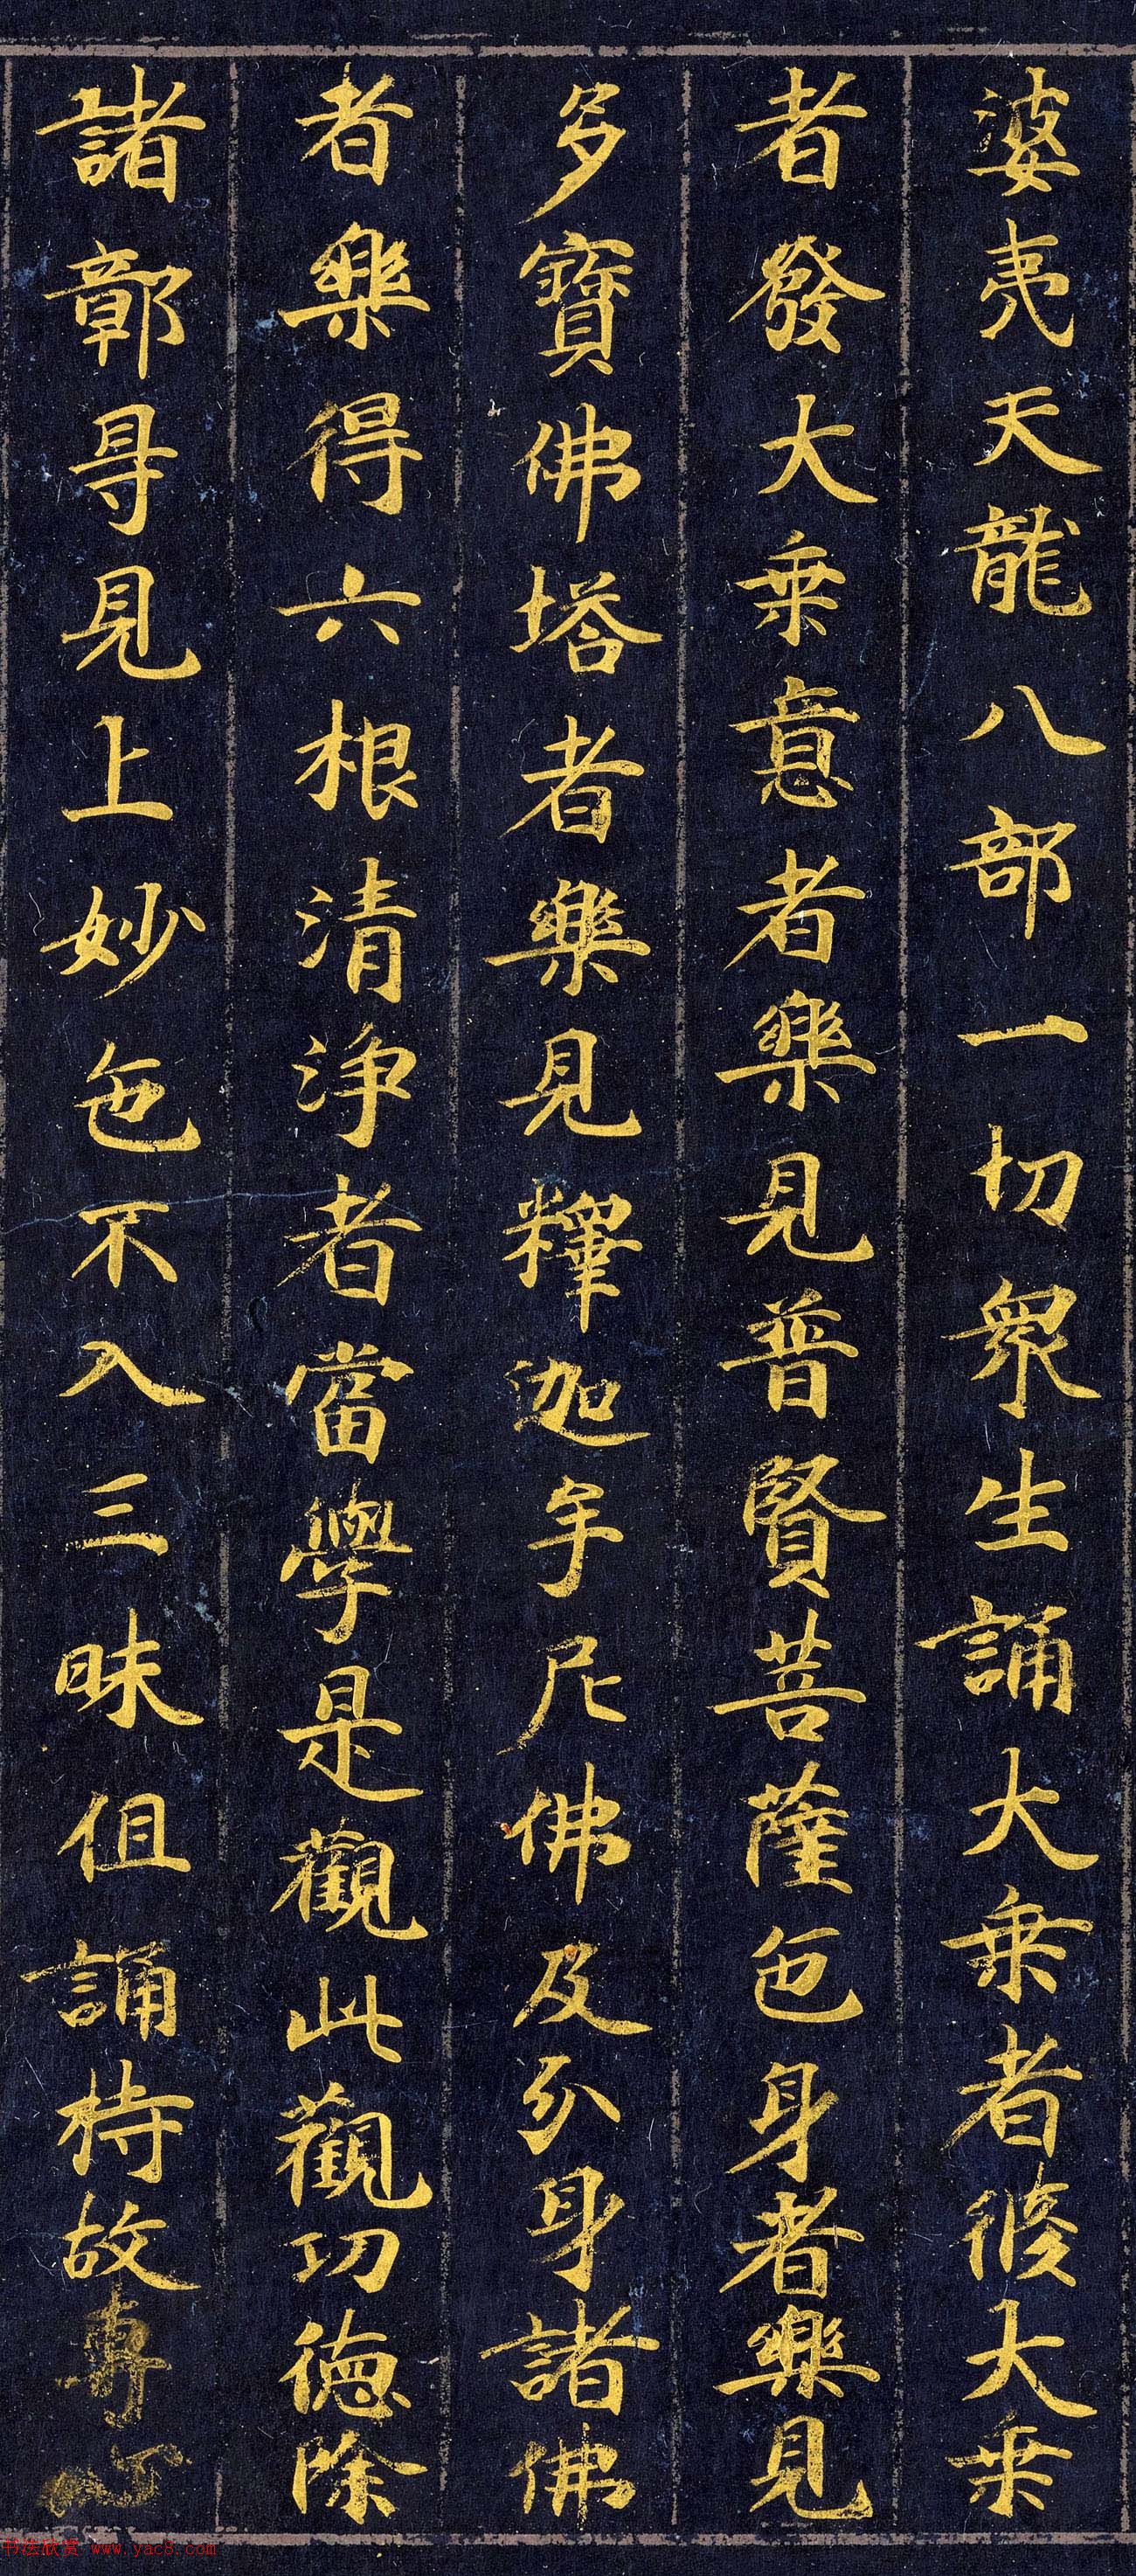 婆夷天龍八部一切衆生誦大乗者修大乗
者發大乗意者樂見普賢菩薩色身者樂見
多寶佛塔者樂見釋迦牟尼佛及分身諸佛
者樂得六根清浄者當學是觀此觀功德除
諸鄣㝵見上妙色不入三昧但誦持故專心
书法欣赏 www.yac8.com